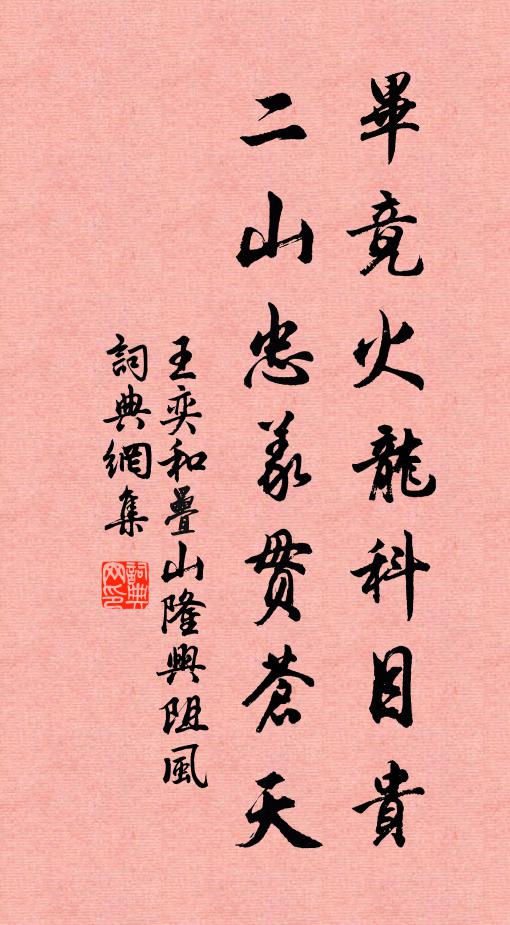 畢竟火龍科目貴
二山忠義貫蒼天
王奕和疊山隆興阻風
詞典網集
詞典
网印